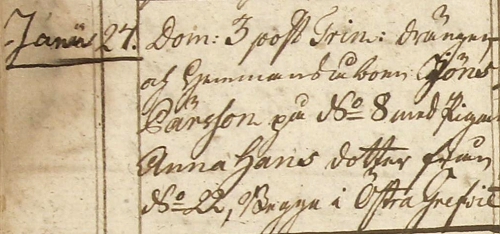 Junii 24. Dom: 3 post Trin: drängen
och Hemmansåboen Jöns
Pärsson på No 8 med Pigan
Anna Hans dotter från
No 22, Begge i Östra Grefvie